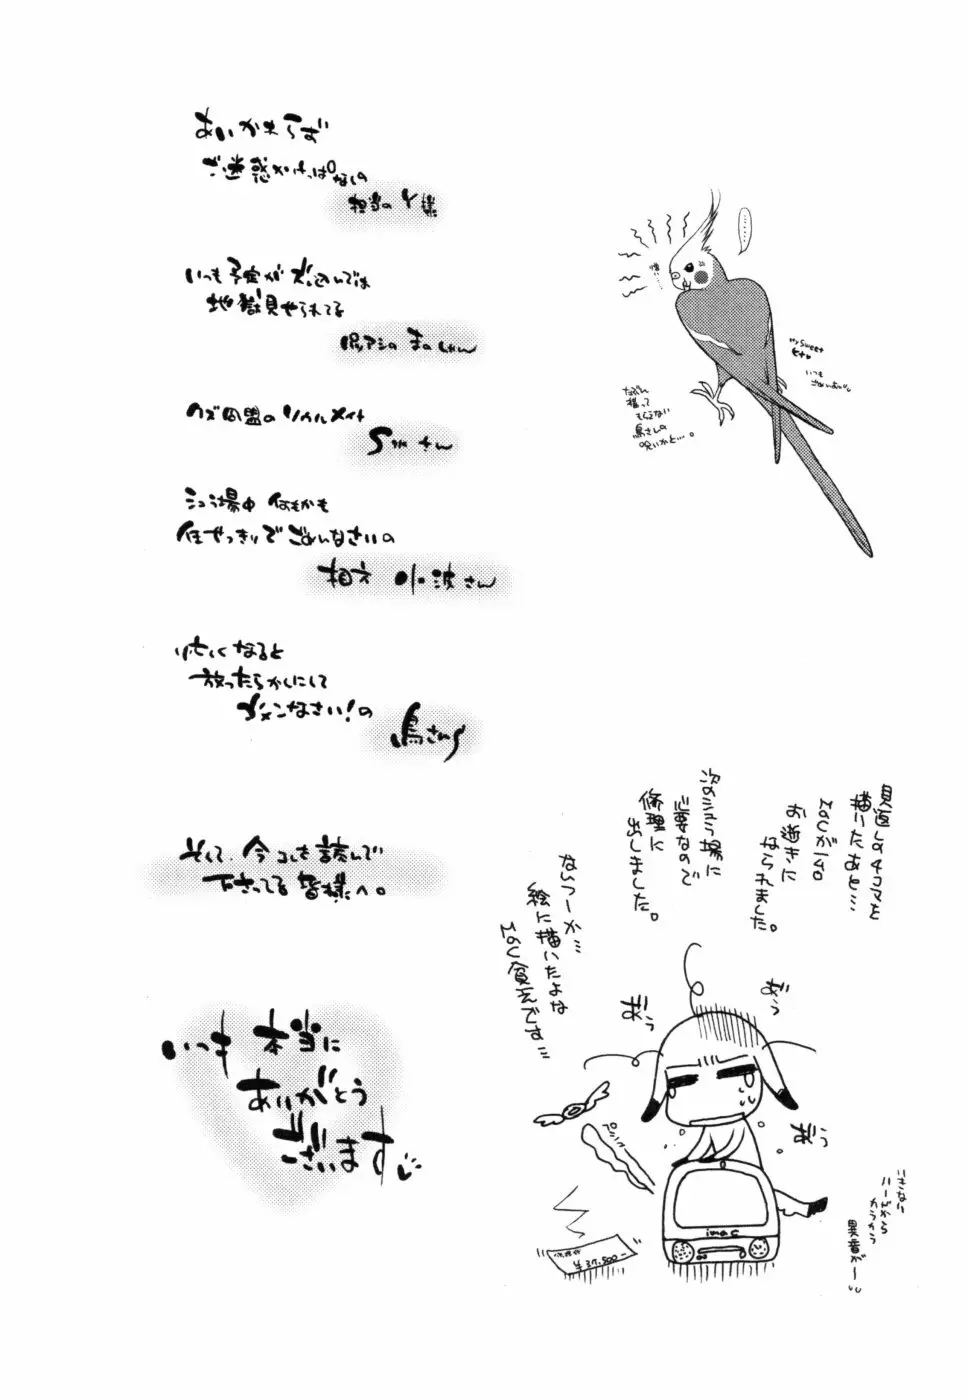 あいかわらず
ご迷惑かけっぱなしの
担当のY様
いつも予定が
地獄見せられてる
アシの まのしゃん
クズ同盟のソウルメイト
さん
シュラ場中 何もかも
任せっきりでごめんなさいの
相方 小波さん
忙しくなると
放ったらかしにして
ゴメンなさい!の
鳥さん
そして、今コレを読んで
下さってる皆様へ。
いつも 本当に
ありがとう
ございます
……
憎い…
My Sweet
いつも
ごめんね
たぶん
構って
もらえない
鳥さんの
呪いかと…。
見返しの4コマを
描いたあと…
MaCが1台
お逝きに
なられました。
次のシュラ場に
必要なので
修理に
出しました。
ならつーか…
絵に描いたよな
MaC貧乏です…
あうっ
imac
¥37,500-
ハードから
カラカラ
異音がー